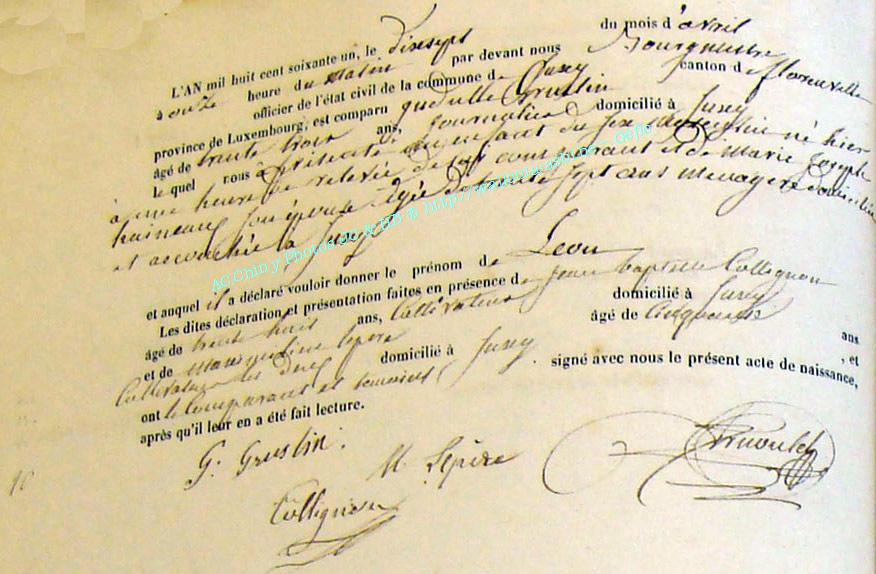 L'AN mil huit cent soixante un, le dixsept du mois d'avril
à onze heure du matin par devant nous Bourgmestre
officier de l'état civil de la commune de Jusey canton de florenville
province de Luxembourg, est comparu gudulle Gruslin
âgé de trente trois ans, journalier domicilié à Jusey
lequel nous a présenté un enfant du sexe masculin né hier
à une heure de relevée de lui comparant et de Marie joseph
haineaux son épouse agée de trente sept ans menagere domiciliée
et accouchée à Jusey
et auquel il a déclaré vouloir donner le prénom de Leon
Les dites déclaration et présentation faites en présence de jean baptiste Collignon
âgé de trente huit ans, Cultivateur domicilié à Jusey
et de lepere âgé de cinquante ans
Cultivateur domicilié à Jusey , et
ont le Comparant et temoins signé avec nous le présent acte de naissance,
après qu'il leur en a été fait lecture.
G. Gruslin.
M. Lepère
Collignon
16
AC Chiny Photos de & HB © http://www